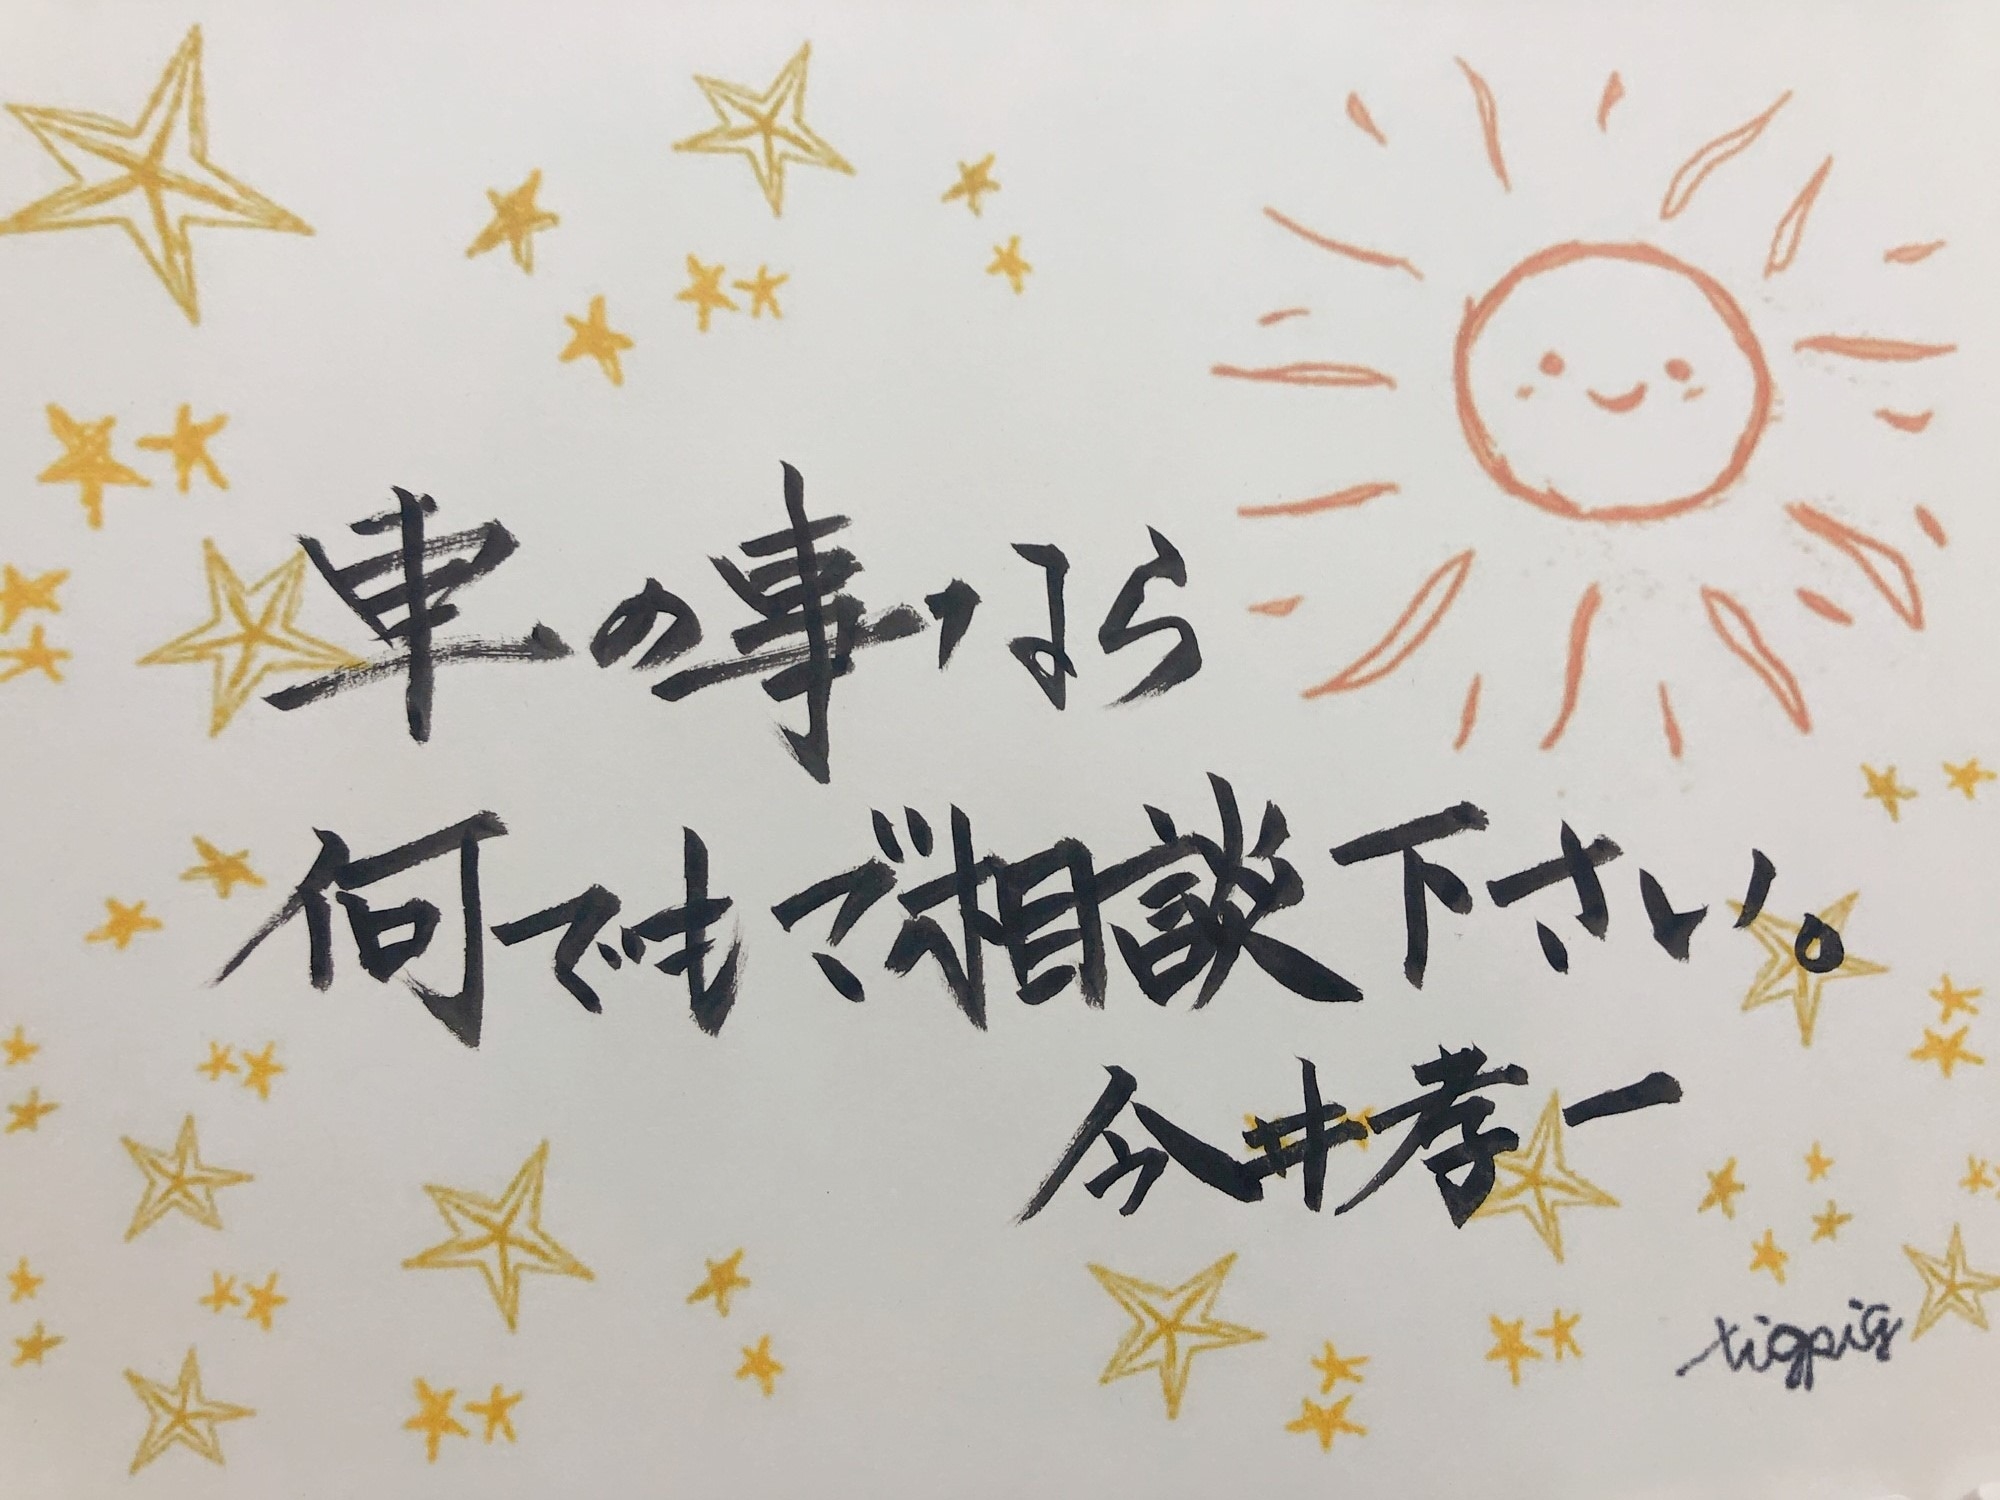 車の事なら
何でもご相談下さい。
今井孝一
tigpig